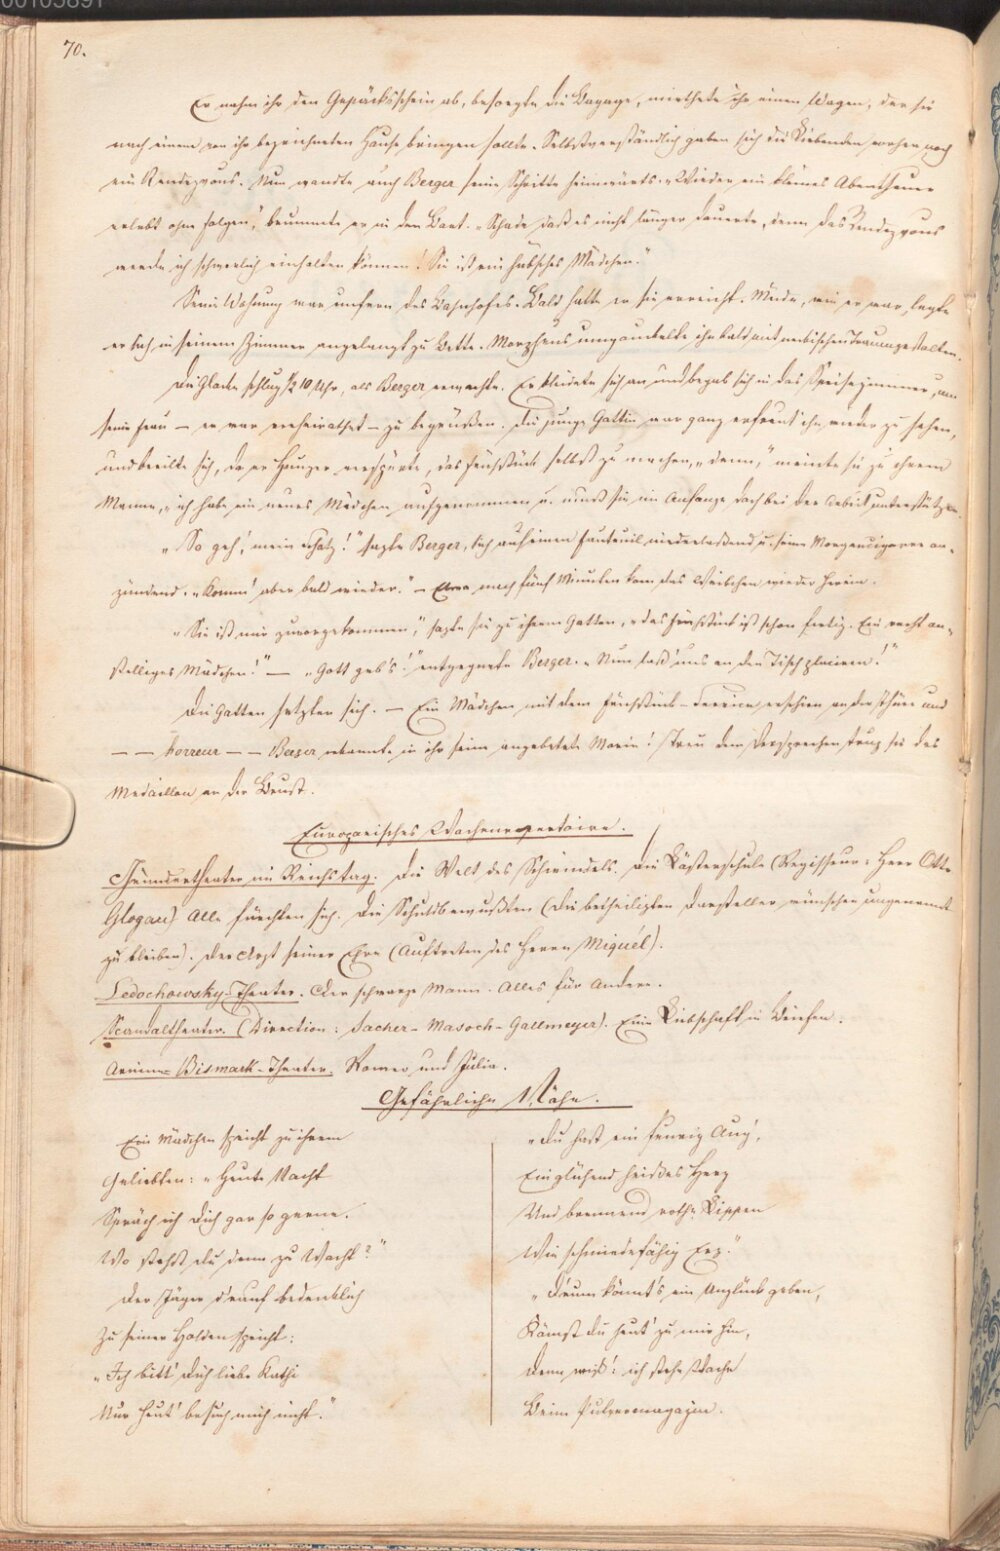 70.
Er nahm ihr den Gepäcksschein ab, besorgte die Bagage, miethete ihr einen Wagen, der sie
nach einem von ihr bezeichneten Hause bringen sollte. Selbstverständlich gaben sich die Liebenden vorher noch
ein Rendezvous. Nun wandte auch Berger seine Schritte heimwärts. „Wieder ein kleines Abentheuer
erlebt ohne Folgen," brummte er in den Bart. „Schade daß es nicht länger dauerte, denn das Rendezvous
werde ich schwerlich einhalten können! Sie ist ein hübsches Mädchen."
Seine Wohnung war unfern des Bahnhofes. Bald hatte er sie erreicht. Müde, wie er war, legte
er sich, in seinem Zimmer angelangt zu Bette. Morpheus umgaukelte ihn bald mit neckischen Traumgestalten.
Die Glocke schlug ½ 10 Uhr, als Berger erwachte. Er kleidete sich an und begab sich in das Speisezimmer, um
seine Frau – er war verheirathet – zu begrüßen. Die junge Gattin war ganz erfreut ihn wieder zu sehen,
und beeilte sich, da er Hunger verspürte, das Frühstück selbst zu machen, „denn," meinte sie zu ihrem
Manne, „ich habe ein neues Mädchen aufgenommen u. muß sie im Anfange doch bei der Arbeit unterstützen.
„So geh', mein Schatz!" sagte Berger, sich auf einen Fauteuil niederlaßend u. seine Morgencigarre an-
zündend. „Komm' aber bald wieder." – Etwa nach fünf Minuten kam das Weibchen wieder herein.
„Sie ist mir zuvorgekommen," sagte sie zu ihrem Gatten, „das Frühstück ist schon fertig. Ein recht an-
stelliges Mädchen!" – „Gott geb's!" entgegnete Berger. „Nun laß' uns an den Tisch placiren!"
Die Gatten setzten sich. – Ein Mädchen mit dem Frühstück-Service erschien an der Thüre und
– – horreur – – Berger erkannte in ihr seine angebetete Marie! Treu dem Versprechen trug sie das
Medaillon an der Brust.
Europaeisches Wochenrepertoire.
Gründertheater im Reichstag. Die Welt des Schwindels. Die Lästerschule (Regisseur: Herr Otto
Glogau) Alle fürchten sich. Die Schuldbewußten (die betheiligten Darsteller wünschen ungenannt
zu bleiben). Der Arzt seiner Ehre (Auftreten des Herrn Miquél).
Ledochowsky-Theater. Der schwarze Mann. Alles für Andere.
Scandaltheater. (Direction: Sacher-Masoch-Gallmeyer). Eine Liebschaft in Briefen.
Arnim-Bismark-Theater. Romeo und Julia.
Gefährliche Nähe.
Ein Mädchen spricht zu ihrem
Geliebten: „Heute Nacht
Spräch ich dich gar so gerne.
Wo stehst du denn zu Wacht?"
Der Jäger d'rauf bedenklich
Zu seiner Holden spricht:
„Ich bitt' dich liebe Kathi
Nur heut' besuch mich nicht."
„Du hast ein feurig Aug',
Ein glühend heißes Herz
Und brennend rothe Lippen
Wie schmiedefähig Erz."
„D'rum könnt's ein Unglück geben,
Kämst du heut' zu mir hin,
Denn wiß'! ich stehe Wache
Beim Pulvermagazin.